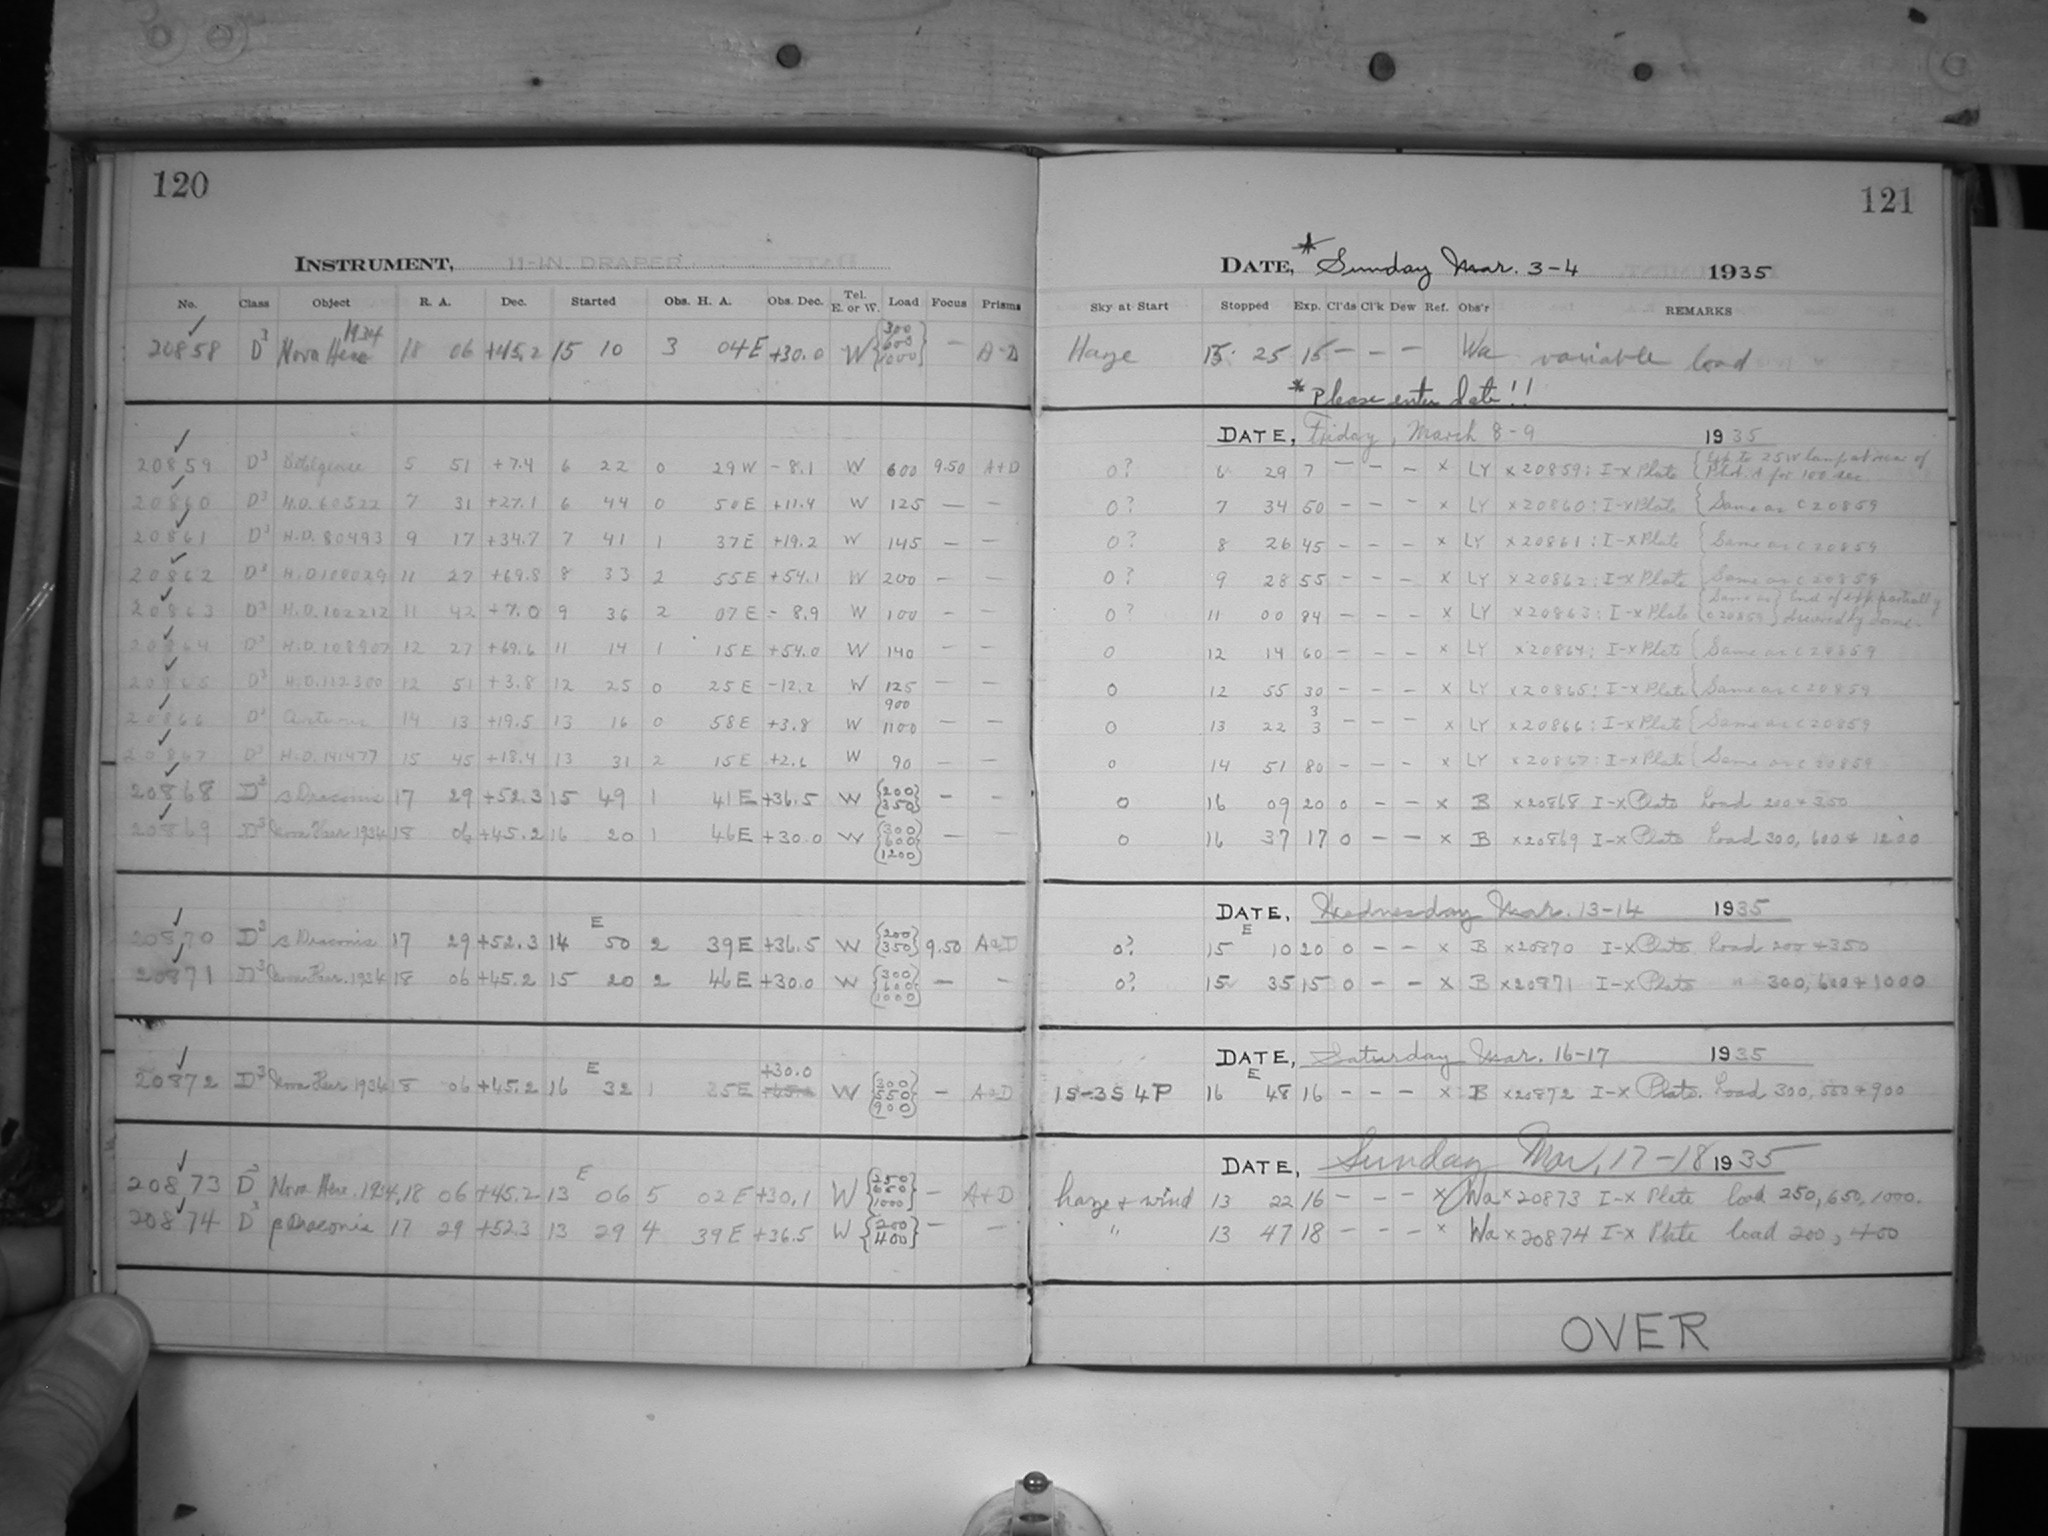 120
INSTRUMENT, 11-IN. DRAPER
No. Class Object R. A. Dec. Started Obs. H. A. Obs. Dec. Tel. E. or W. Load Focus Prisms
20858 D3 Nova Herc 1934 18 06 +45.2 15 10 3 04E +30.0 W {300 600 1000} — A-D
20859 D3 5 51 +7.4 6 22 0 29W -8.1 W 600 9.50 A+D
20860 D3 H.D. 60522 7 31 +27.1 6 44 0 50E +11.4 W 125 — —
20861 D3 H.D. 80493 9 17 +34.7 7 41 1 37E +19.2 W 145 — —
20862 D3 H.D. 11 27 +69.8 8 33 2 55E +54.1 W 200 — —
20863 D3 H.D. 102212 11 42 +7.0 9 36 2 07E -8.9 W 100 — —
20864 D3 H.D. 108907 12 27 +69.6 11 14 1 15E +54.0 W 140 — —
20865 D3 H.D. 112300 12 51 +3.8 12 25 0 25E -12.2 W 125 — —
20866 D3 Arcturus 14 13 +19.5 13 16 0 58E +3.8 W 900 1100 — —
20867 D3 H.D. 141477 15 45 +18.4 13 31 2 15E +2.6 W 90 — —
20868 D3 β Draconis 17 29 +52.3 15 49 1 41E +36.5 W {200 350} — —
20869 D3 Nova Her. 1934 18 06 +45.2 16 20 1 46E +30.0 W {300 600 1200} — —
20870 D3 β Draconis 17 29 +52.3 14 E 50 2 39E +36.5 W {200 350} 9.50 A+D
20871 D3 Nova Her. 1934 18 06 +45.2 15 20 2 46E +30.0 W {300 600 1000} — —
20872 D3 Nova Her. 1934 18 06 +45.2 16 E 32 1 35E +30.0 W {300 550 900} — A+D
20873 D3 Nova Herc. 1934, 18 06 +45.2 13 E 06 5 02E +30.1 W {250 650 1000} — A+D
20874 D3 β Draconis 17 29 +52.3 13 29 4 39E +36.5 W {200 400} — —
121
DATE, * Sunday Mar. 3-4 1935
Sky at Start Stopped Exp. Cl'ds Cl'k Dew Ref. Obs'r REMARKS
Haze 15 25 15 — — — Wa variable load
* Please enter date!!
DATE, Friday, March 8-9 1935
0? 6 29 7 — — — x LY x20859: I-x Plate {Exp. to 25W lamp at rear of Plat. A for 100 sec.
0? 7 34 50 — — — x LY x20860: I-x Plate {Same as C20859
0? 8 26 45 — — — x LY x20861: I-x Plate {Same as C20859
0? 9 28 55 — — — x LY x20862: I-x Plate {Same as C20859
0? 11 00 84 — — — x LY x20863: I-x Plate {Same as C20859} End of exp partially by dome.
0 12 14 60 — — — x LY x20864: I-x Plate {Same as C20859
0 12 55 30 — — — x LY x20865: I-x Plate {Same as C20859
0 13 22 3 3 — — — x LY x20866: I-x Plate {Same as C20859
0 14 51 80 — — — x LY x20867: I-x Plate {Same as C20859
0 16 09 20 0 — — x B x20868 I-x Plate Load 200 + 350
0 16 37 17 0 — — x B x20869 I-x Plate Load 300, 600 + 1200
DATE, Wednesday Mar. 13-14 1935
0? 15 E 10 20 0 — — x B x20870 I-x Plate Load 200 + 350
0? 15 35 15 0 — — x B x20871 I-x Plate " 300, 600 + 1000
DATE, Saturday Mar. 16-17 1935
15-3S 4P 16 E 48 16 — — — x B x20872 I-x Plate. Load 300, 550 + 900
DATE, Sunday Mar, 17-18 1935
haze + wind 13 22 16 — — — x Wa x20873 I-x Plate load 250, 650, 1000.
" 13 47 18 — — — x Wa x20874 I-x Plate load 200, 400
OVER